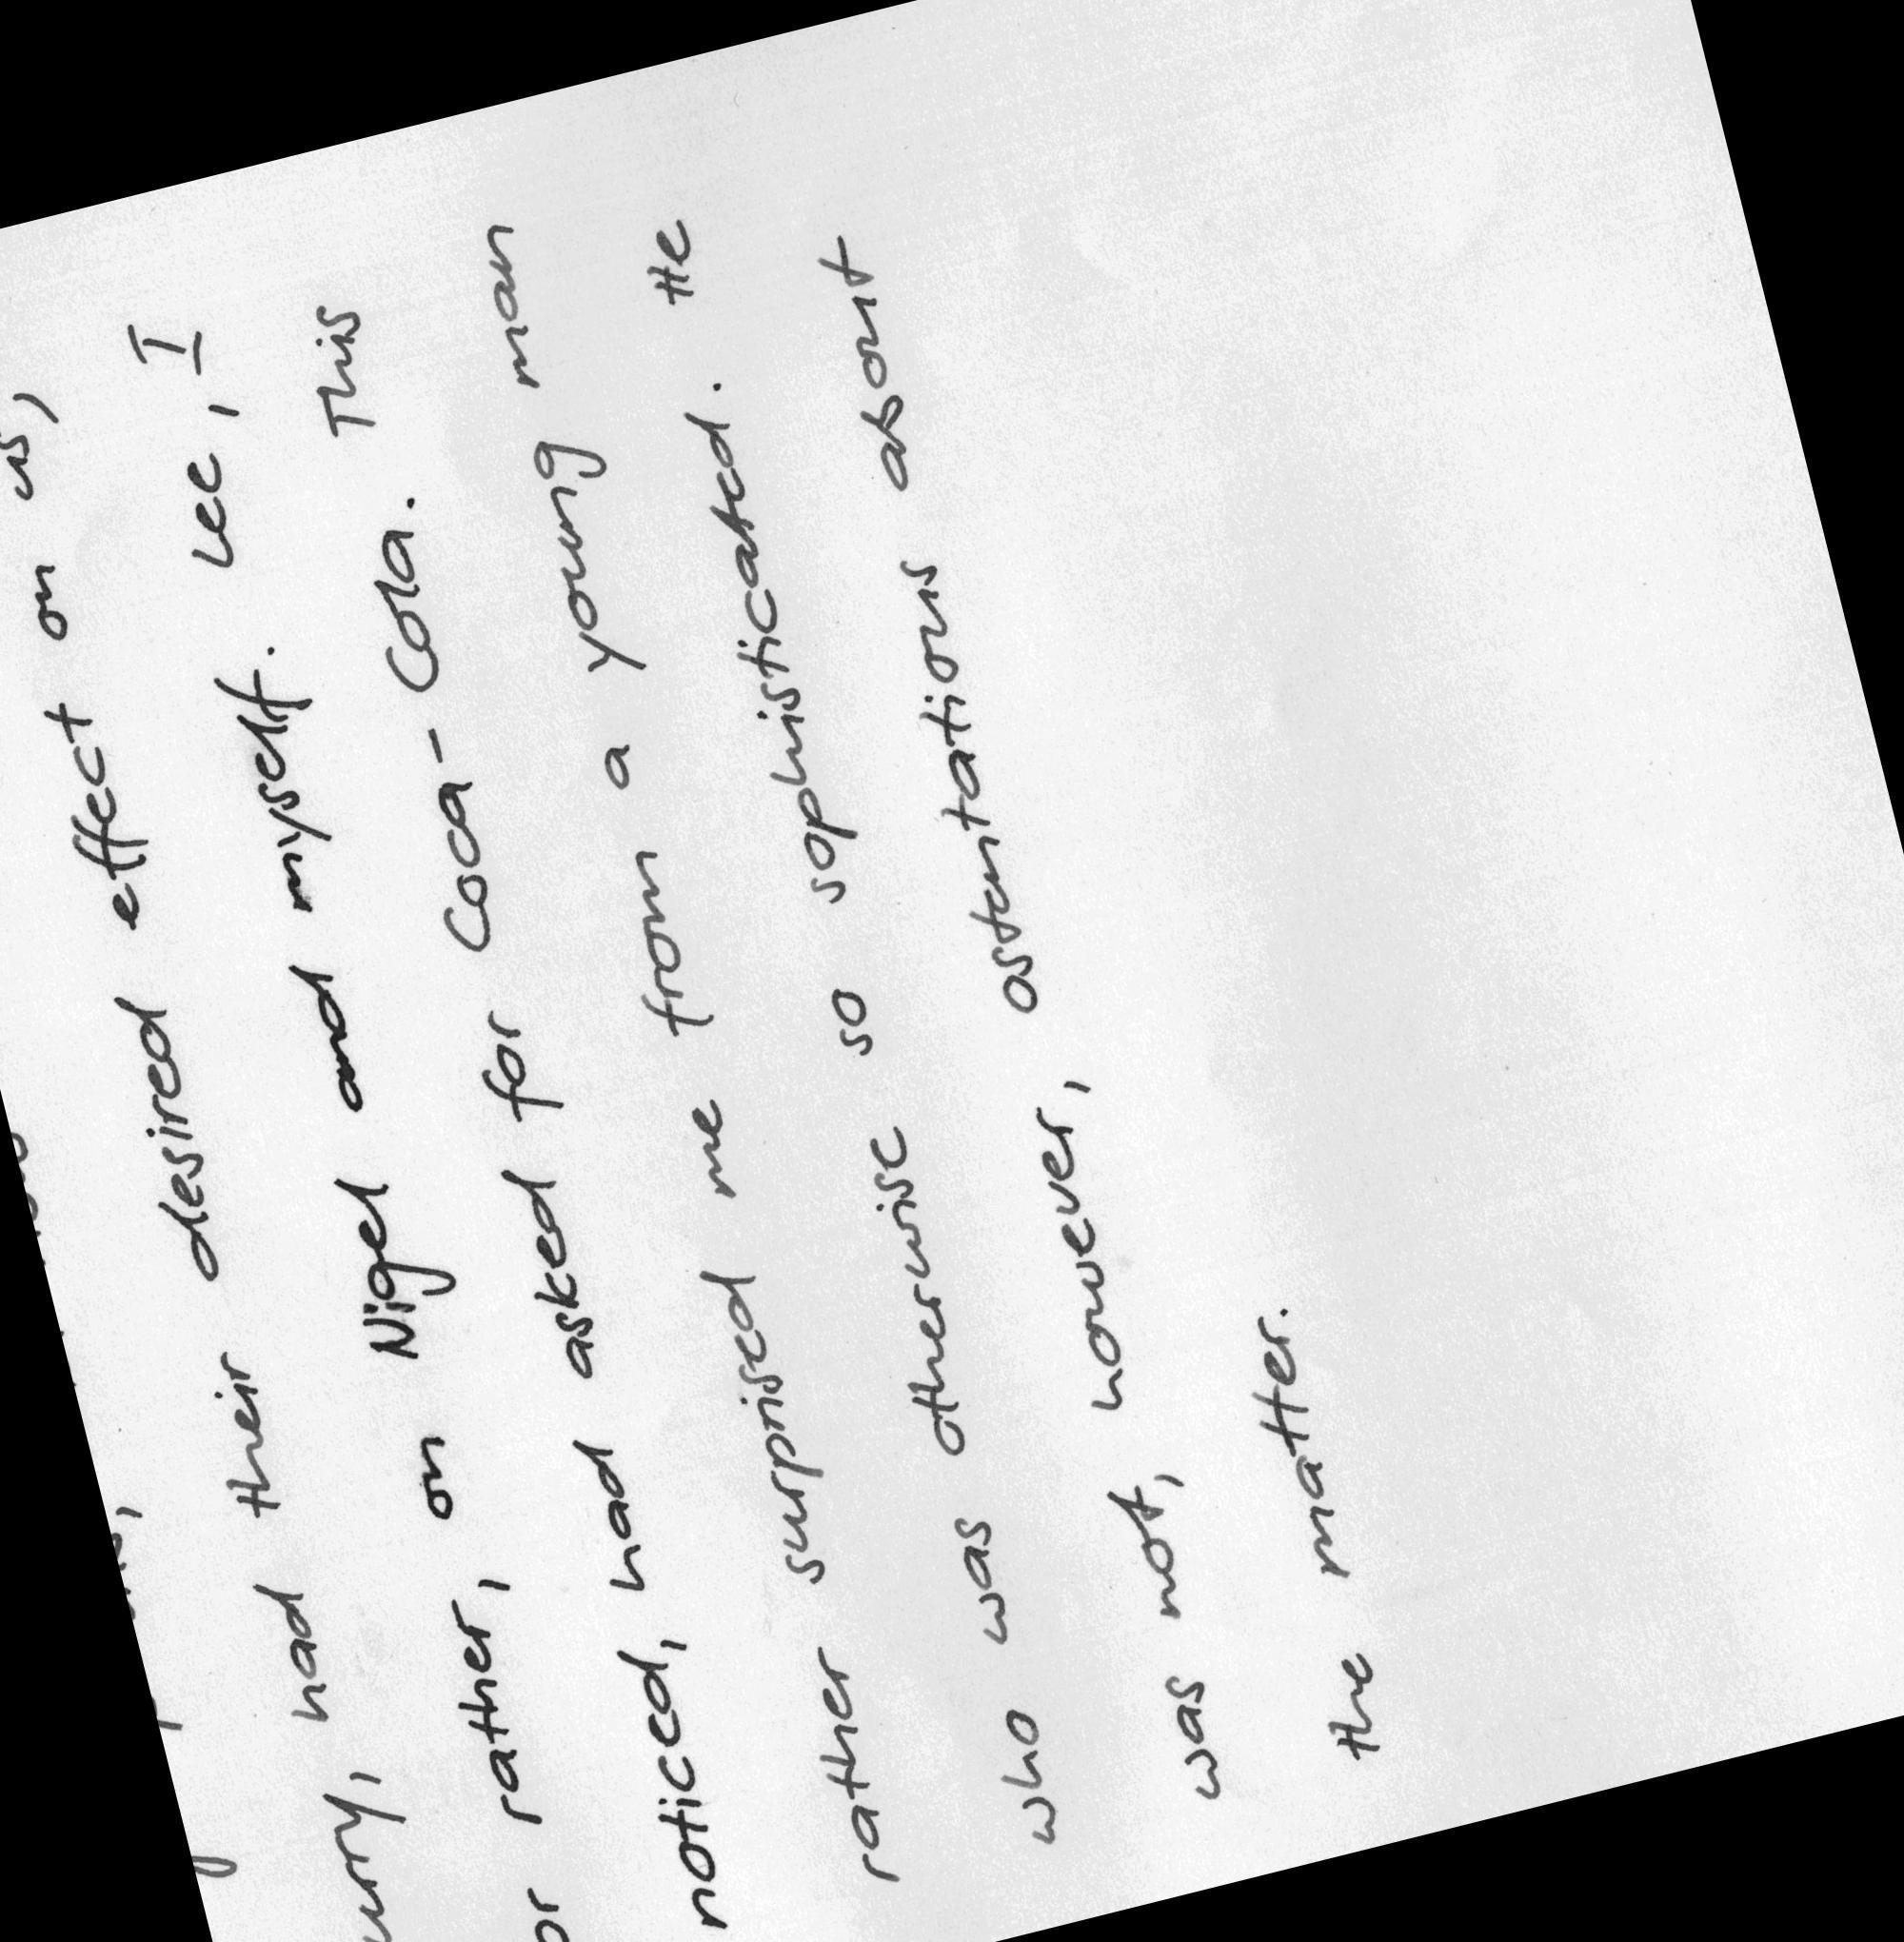 had their desired effect on us,
or rather, on Nigel and myself. Lee, I
noticed, had asked for Coca-Cola. This
rather surprised me from a young man
who was otherwise so sophisticated. He
was not, however, ostentatious about
the matter.